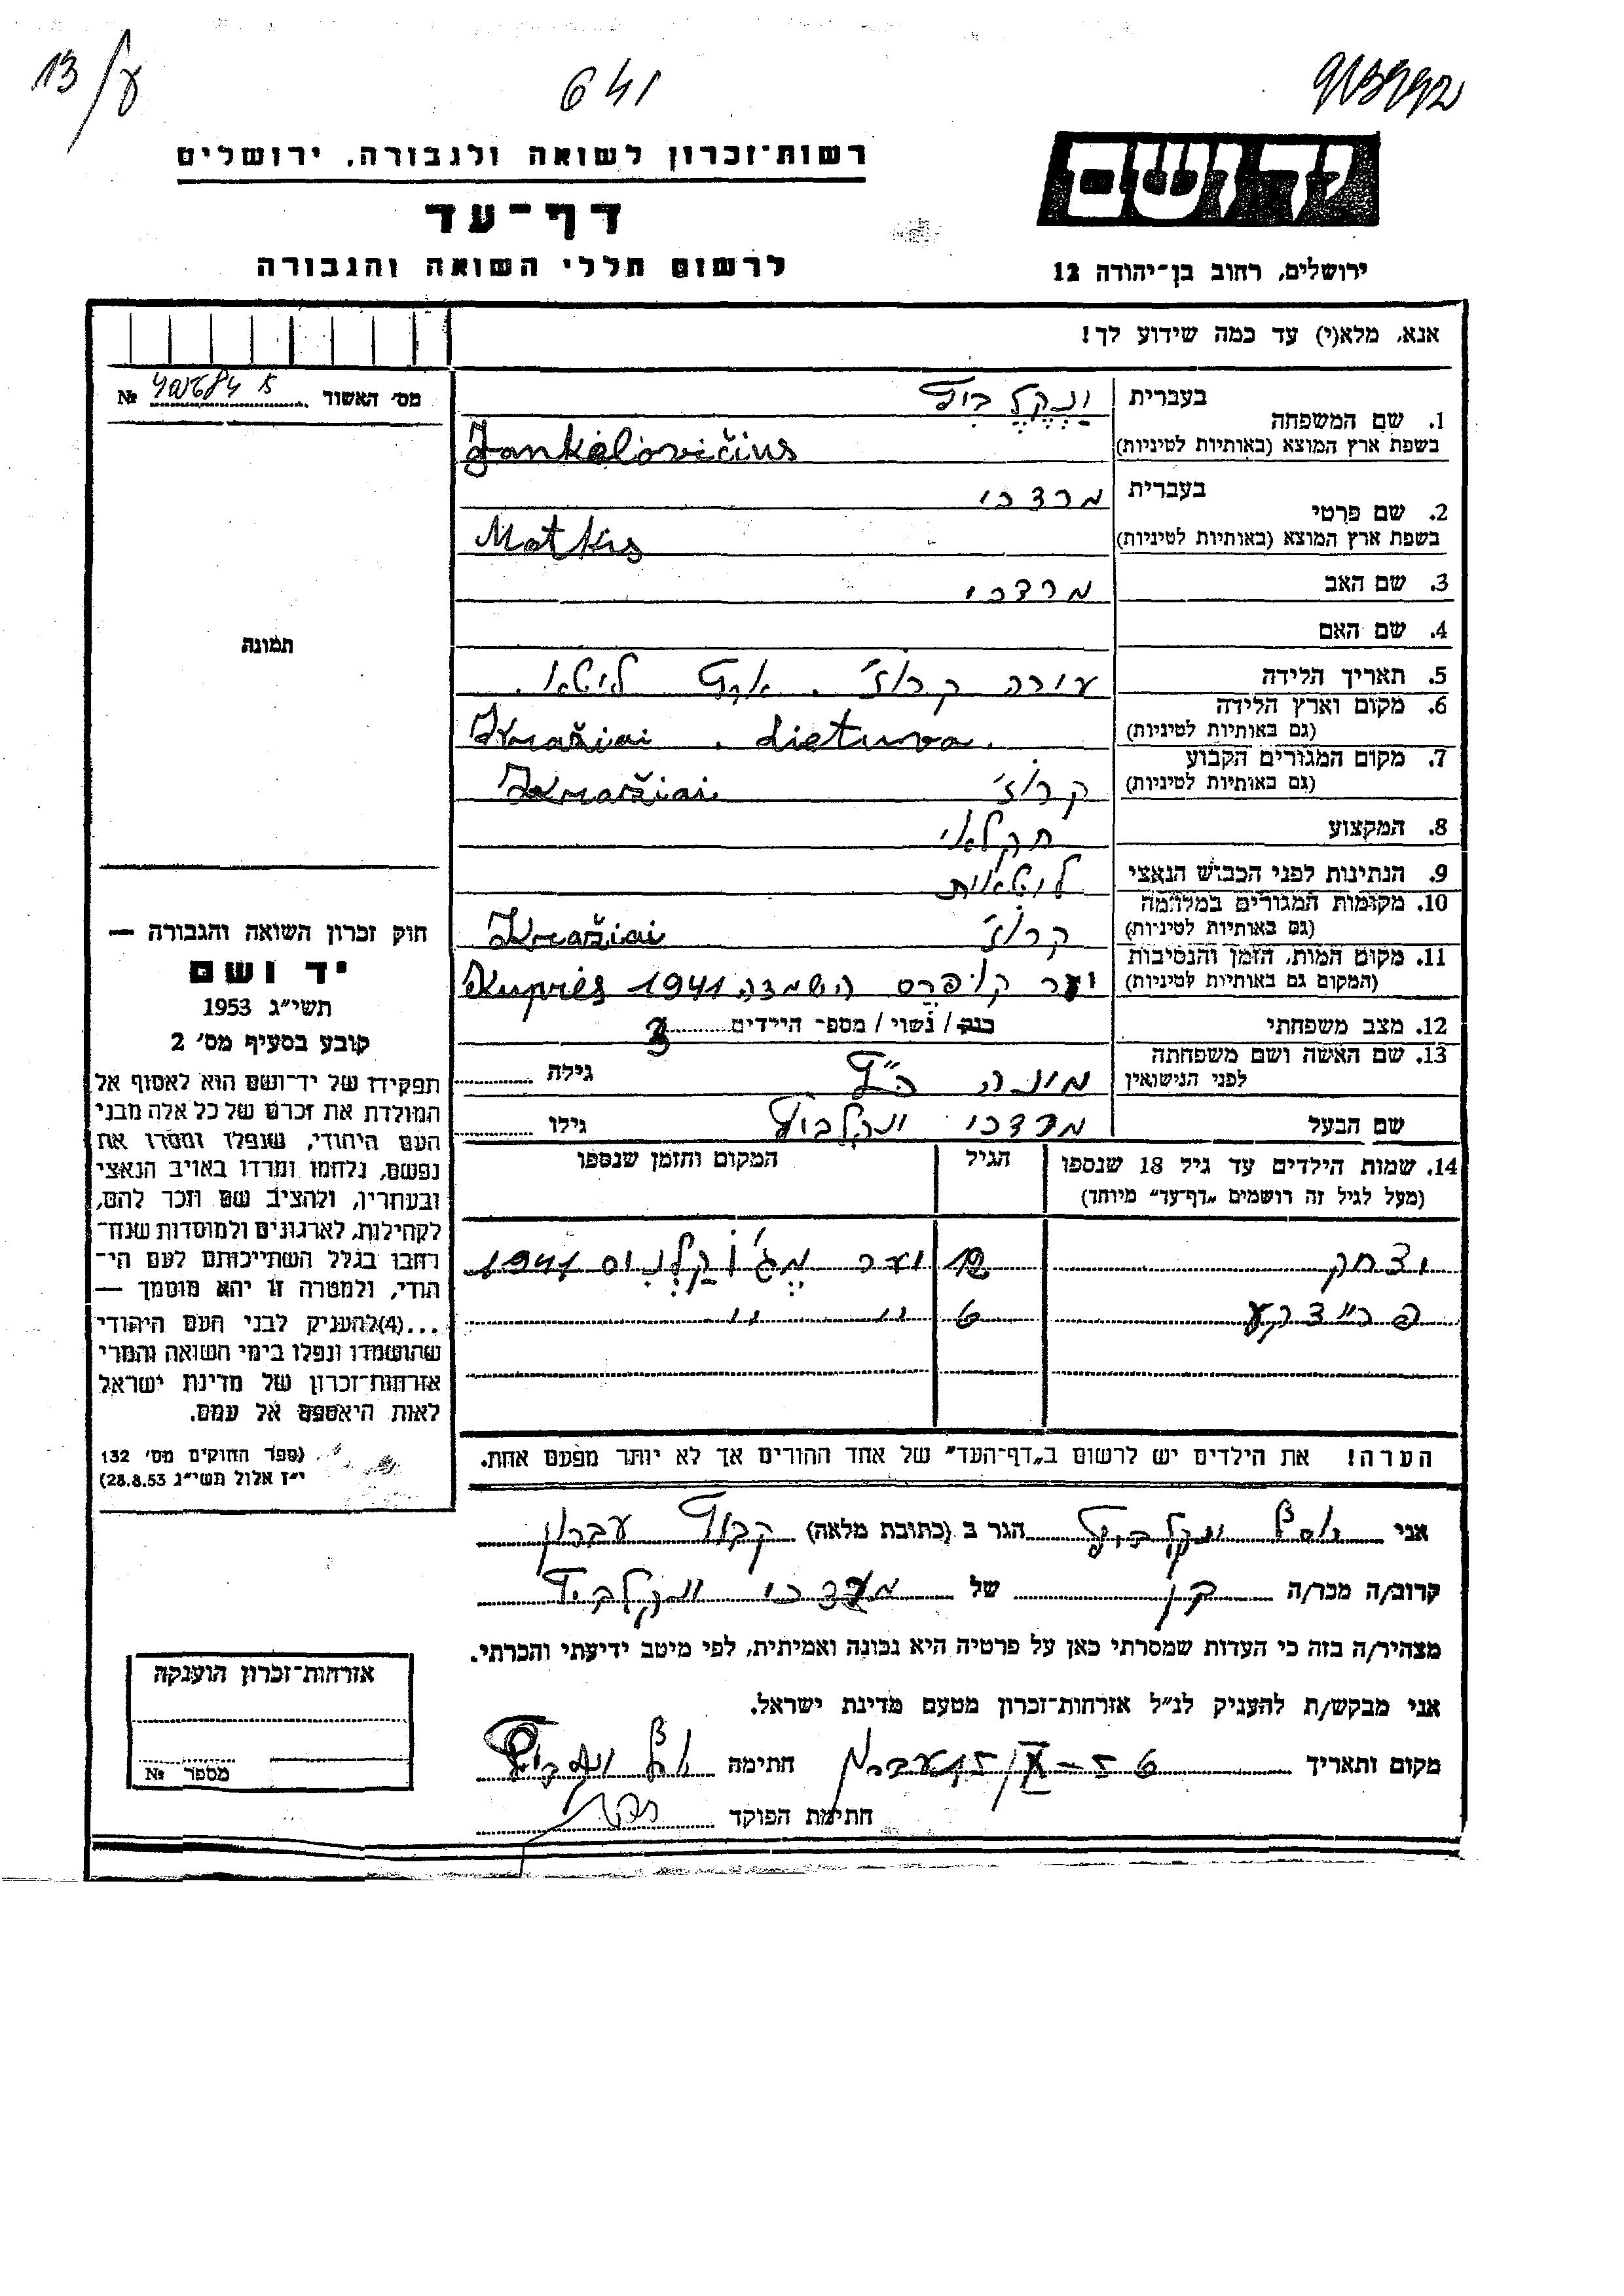 13/ע
641
רשות־זכרון לשואה ולגבורה, ירושלים
דף־עד
לרשום חללי השואה והגבורה
יד ושם
ירושלים, רחוב בן־יהודה 12
אנא, מלא(י) עד כמה שידוע לך!
מס' האשור №
1. שם המשפחה בעברית ינקלביץ
בשפת ארץ המוצא (באותיות לטיניות) Jankelovičius
2. שם פרטי בעברית מרדכי
בשפת ארץ המוצא (באותיות לטיניות) Motkis
3. שם האב מרדכי
4. שם האם
5. תאריך הלידה
עירה קרוז'. ארץ ליטא.
6. מקום וארץ הלידה
(גם באותיות לטיניות) Kražiai. Lietuva.
7. מקום המגורים הקבוע
(גם באותיות לטיניות) קרוז' Kražiai
8. המקצוע חקלאי
9. הנתינות לפני הכבוש הנאצי ליטאית
10. מקומות המגורים במלחמה
(גם באותיות לטיניות) קרוז' Kražiai
11. מקום המות, הזמן והנסיבות
(המקום גם באותיות לטיניות) יער קופרס השמדה 1941 Kuprės
12. מצב משפחתי רוק / נשוי / מספר הילדים 3
13. שם האשה ושם משפחתה
לפני הנישואין מינה כ"ץ גילה
שם הבעל מרדכי ינקלביץ גילו
14. שמות הילדים עד גיל 18 שנספו הגיל המקום והזמן שנספו
(מעל לגיל זה רושמים „דף־עד" מיוחד)
יצחק 12 יער מג'וקלניס 1941
6 " "
הערה! את הילדים יש לרשום ב„דף־העד" של אחד ההורים אך לא יותר מפעם אחת.
תמונה
חוק זכרון השואה והגבורה —
יד ושם
תשי"ג 1953
קובע בסעיף מס' 2
תפקידו של יד־ושם הוא לאסוף אל
המולדת את זכרם של כל אלה מבני
העם היהודי, שנפלו ומסרו את
נפשם, נלחמו ומרדו באויב הנאצי
ובעוזריו, ולהציב שם וזכר להם,
לקהילות, לארגונים ולמוסדות שנח־
רבו בגלל השתייכותם לעם הי־
הודי, ולמטרה זו יהא מוסמך —
...(4)להעניק לבני העם היהודי
שהושמדו ונפלו בימי השואה והמרי
אזרחות־זכרון של מדינת ישראל
לאות היאספם אל עמם.
(ספר החוקים מס' 132
י"ז אלול תשי"ג 28.8.53)
אני ינקלביץ הגר ב (כתובת מלאה) קבוץ עברון
קרוב/ה מכר/ה בן של מרדכי ינקלביץ
מצהיר/ה בזה כי העדות שמסרתי כאן על פרטיה היא נכונה ואמיתית, לפי מיטב ידיעתי והכרתי.
אני מבקש/ת להעניק לנ"ל אזרחות־זכרון מטעם מדינת ישראל.
מקום ותאריך חתימה
חתימת הפוקד
אזרחות־זכרון הוענקה
מספר №